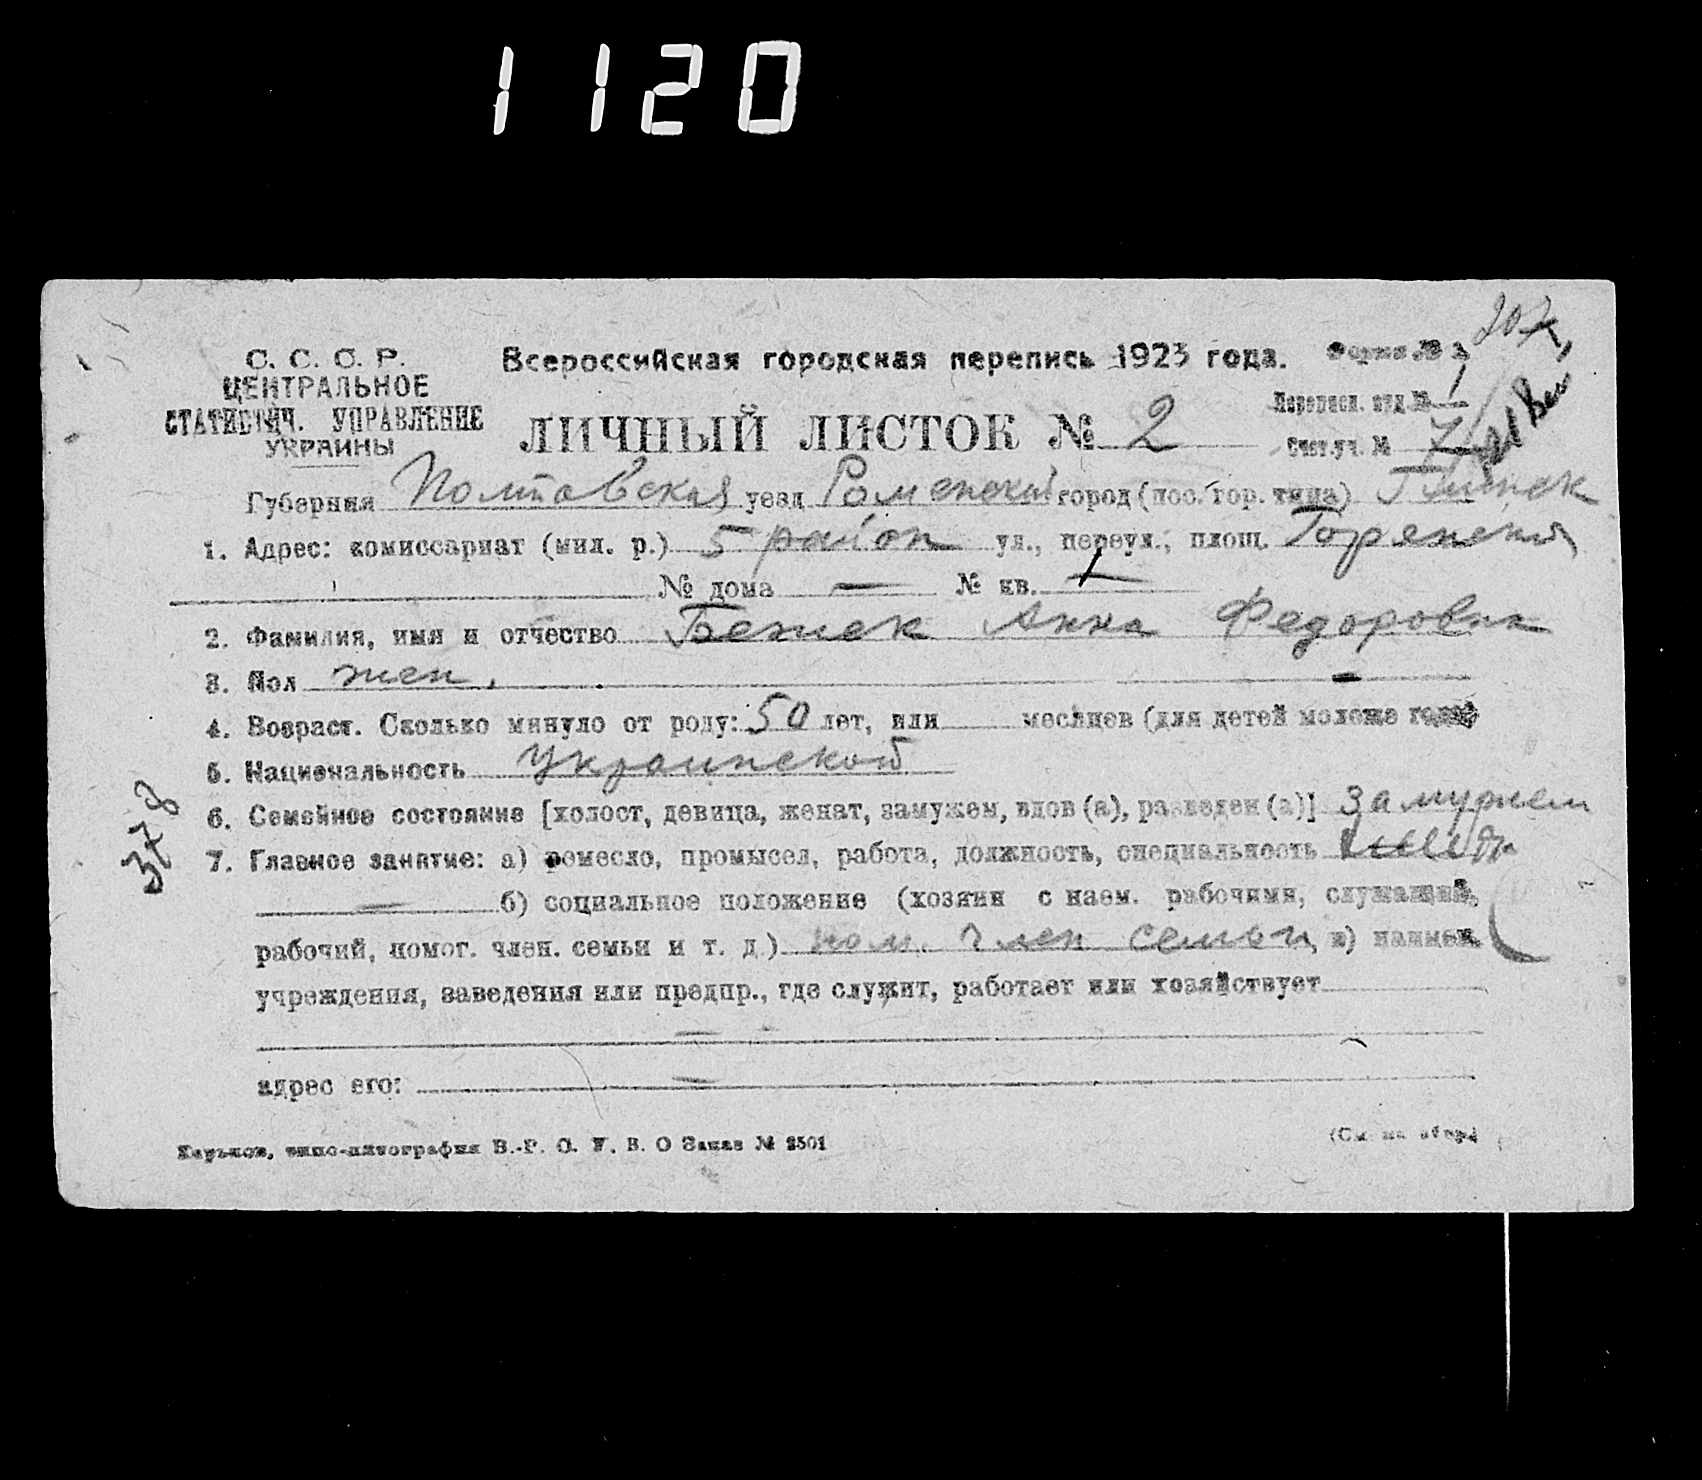 1120
С. С. С. Р.
ЦЕНТРАЛЬНОЕ
СТАТИСТИЧ. УПРАВЛЕНИЕ
УКРАИНЫ
Всероссийская городская перепись 1923 года.
Форма №
207
Переписн. отд. № 1
ЛИЧНЫЙ ЛИСТОК № 2
Счет. уч. № 7
Губерния Полтавская уезд Роменский город (пос. гор. типа) Глинск
1. Адрес: комиссариат (мил. р.) 5 район ул., переул., площ.
№ дома — № кв. —
2. Фамилия, имя и отчество Бежек Анна Федоровна
3. Пол жен.
4. Возраст. Сколько минуло от роду: 50 лет, или месяцев (для детей моложе года)
5. Национальность Украинской
378
6. Семейное состояние [холост, девица, женат, замужем, вдов (а), разведен (а)] замужем
7. Главное занятие: а) ремесло, промысел, работа, должность, специальность
— б) социальное положение (хозяин с наем. рабочими, служащий,
рабочий, помог. член. семьи и т. д.) пом. член семьи, в) наимен.
учреждения, заведения или предпр., где служит, работает или хозяйствует
—
адрес его: —
Харьков, типо-литография В.-Р. О. У. В. О Заказ № 2501
(См. на обор.)